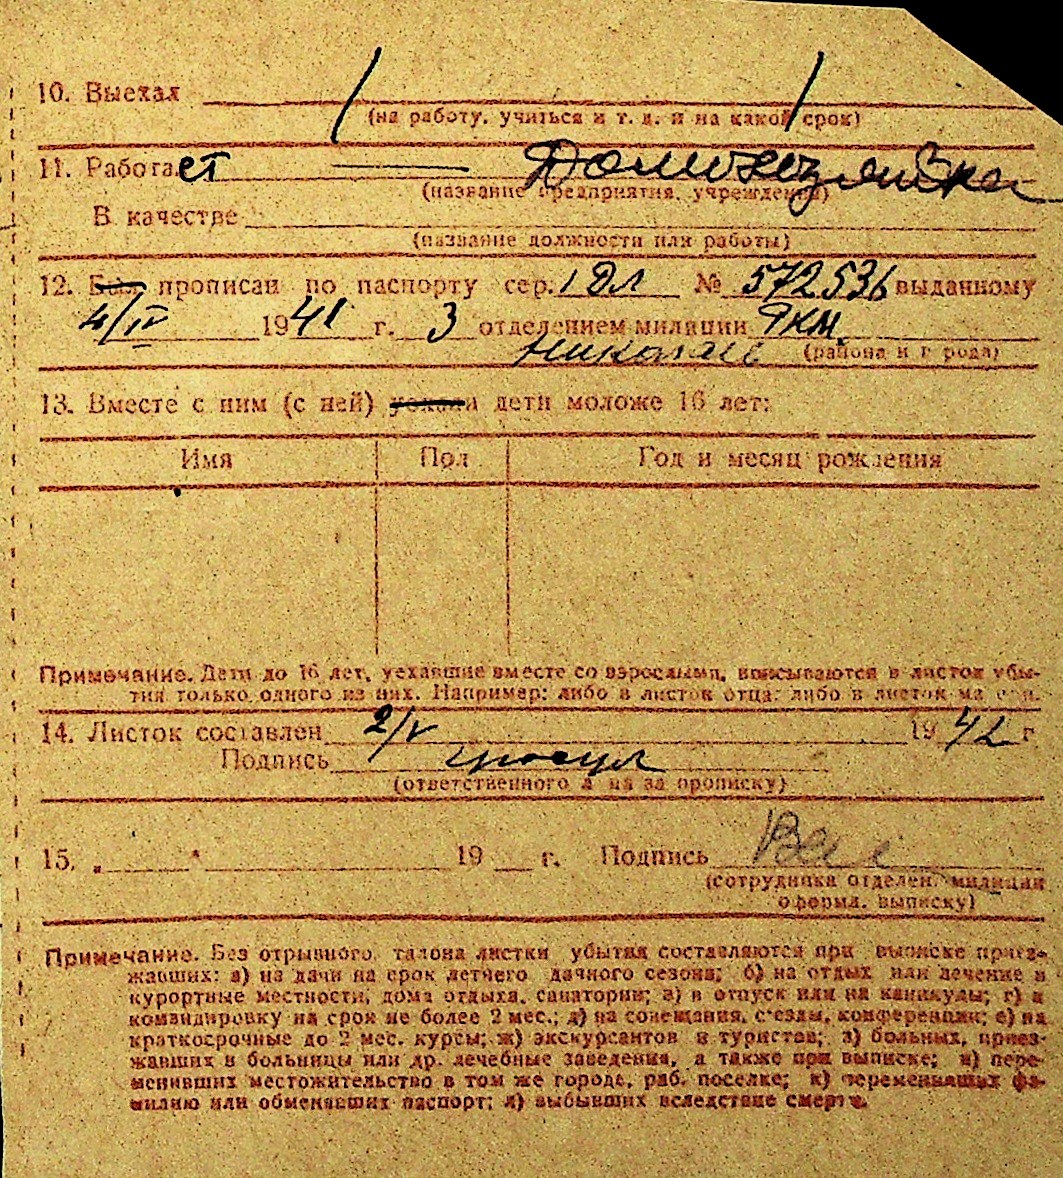 10. Выехал
(на работу, учиться и т. д. и на какой срок)
11. Работает — Домохозяйка
(название предприятия, учреждения)
В качестве
(название должности или работы)
12. Был прописан по паспорту сер. I ДЛ № 572536 выданному
4/IV 1941 г. 3 отделением милиции ЯКМ
Николаев (района и города)
13. Вместе с ним (с ней) уехали дети моложе 16 лет:
Имя Пол Год и месяц рождения
Примечание. Дети до 16 лет, уехавшие вместе со взрослыми, вписываются в листок убы-
тия только одного из них. Например: либо в листок отца; либо в листок матери.
14. Листок составлен 2/V 1942 г
Подпись
(ответственного лица за прописку)
15. „ “ 19 г. Подпись
(сотрудника отделен. милиции
оформл. выписку)
Примечание. Без отрывного талона листки убытия составляются при выписке приез-
жавших: а) на дачи на срок летнего дачного сезона; б) на отдых или лечение в
курортные местности, дома отдыха, санатории; в) в отпуск или на каникулы; г) в
командировку на срок не более 2 мес.; д) на совещания, съезды, конференции; е) на
краткосрочные до 2 мес. курсы; ж) экскурсантов и туристов; з) больных, приез-
жавших в больницы или др. лечебные заведения, а также при выписке; и) пере-
менивших местожительство в том же городе, раб. поселке; к) переменивших фа-
милию или обменявших паспорт; л) выбывших вследствие смерти.